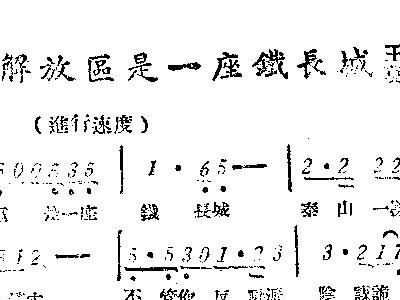 解放區是一座鐵長城
（進行速度）
5 0 0 5 3 5 | 1 · 6 5 — | 2 · 2 2 2
是一座 鐵 長城 泰 山 一
5 1 2 — | 5 · 5 3 0 1 · 2 3 | 3 · 2 1 7
不 管你 反 動派 陰 謀詭